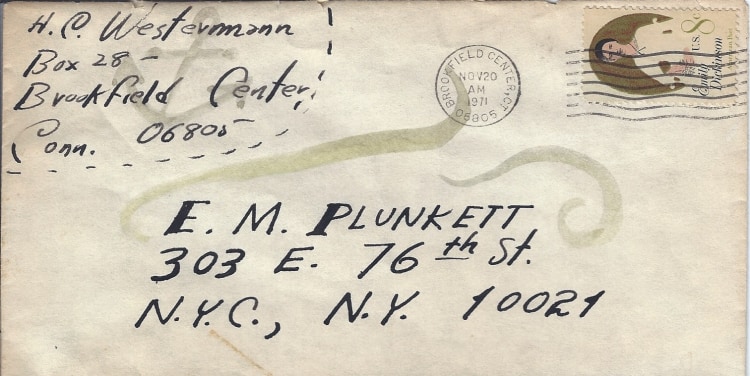 H. C. Westermann
Box 28 -
Brookfield Center,
Conn. 06805
BROOKFIELD CENTER, CT.
NOV 20
AM
1971
06805
8c
U.S.
Emily
Dickinson
American Poet
E. M. PLUNKETT
303 E. 76th St.
N.Y.C., N.Y. 10021